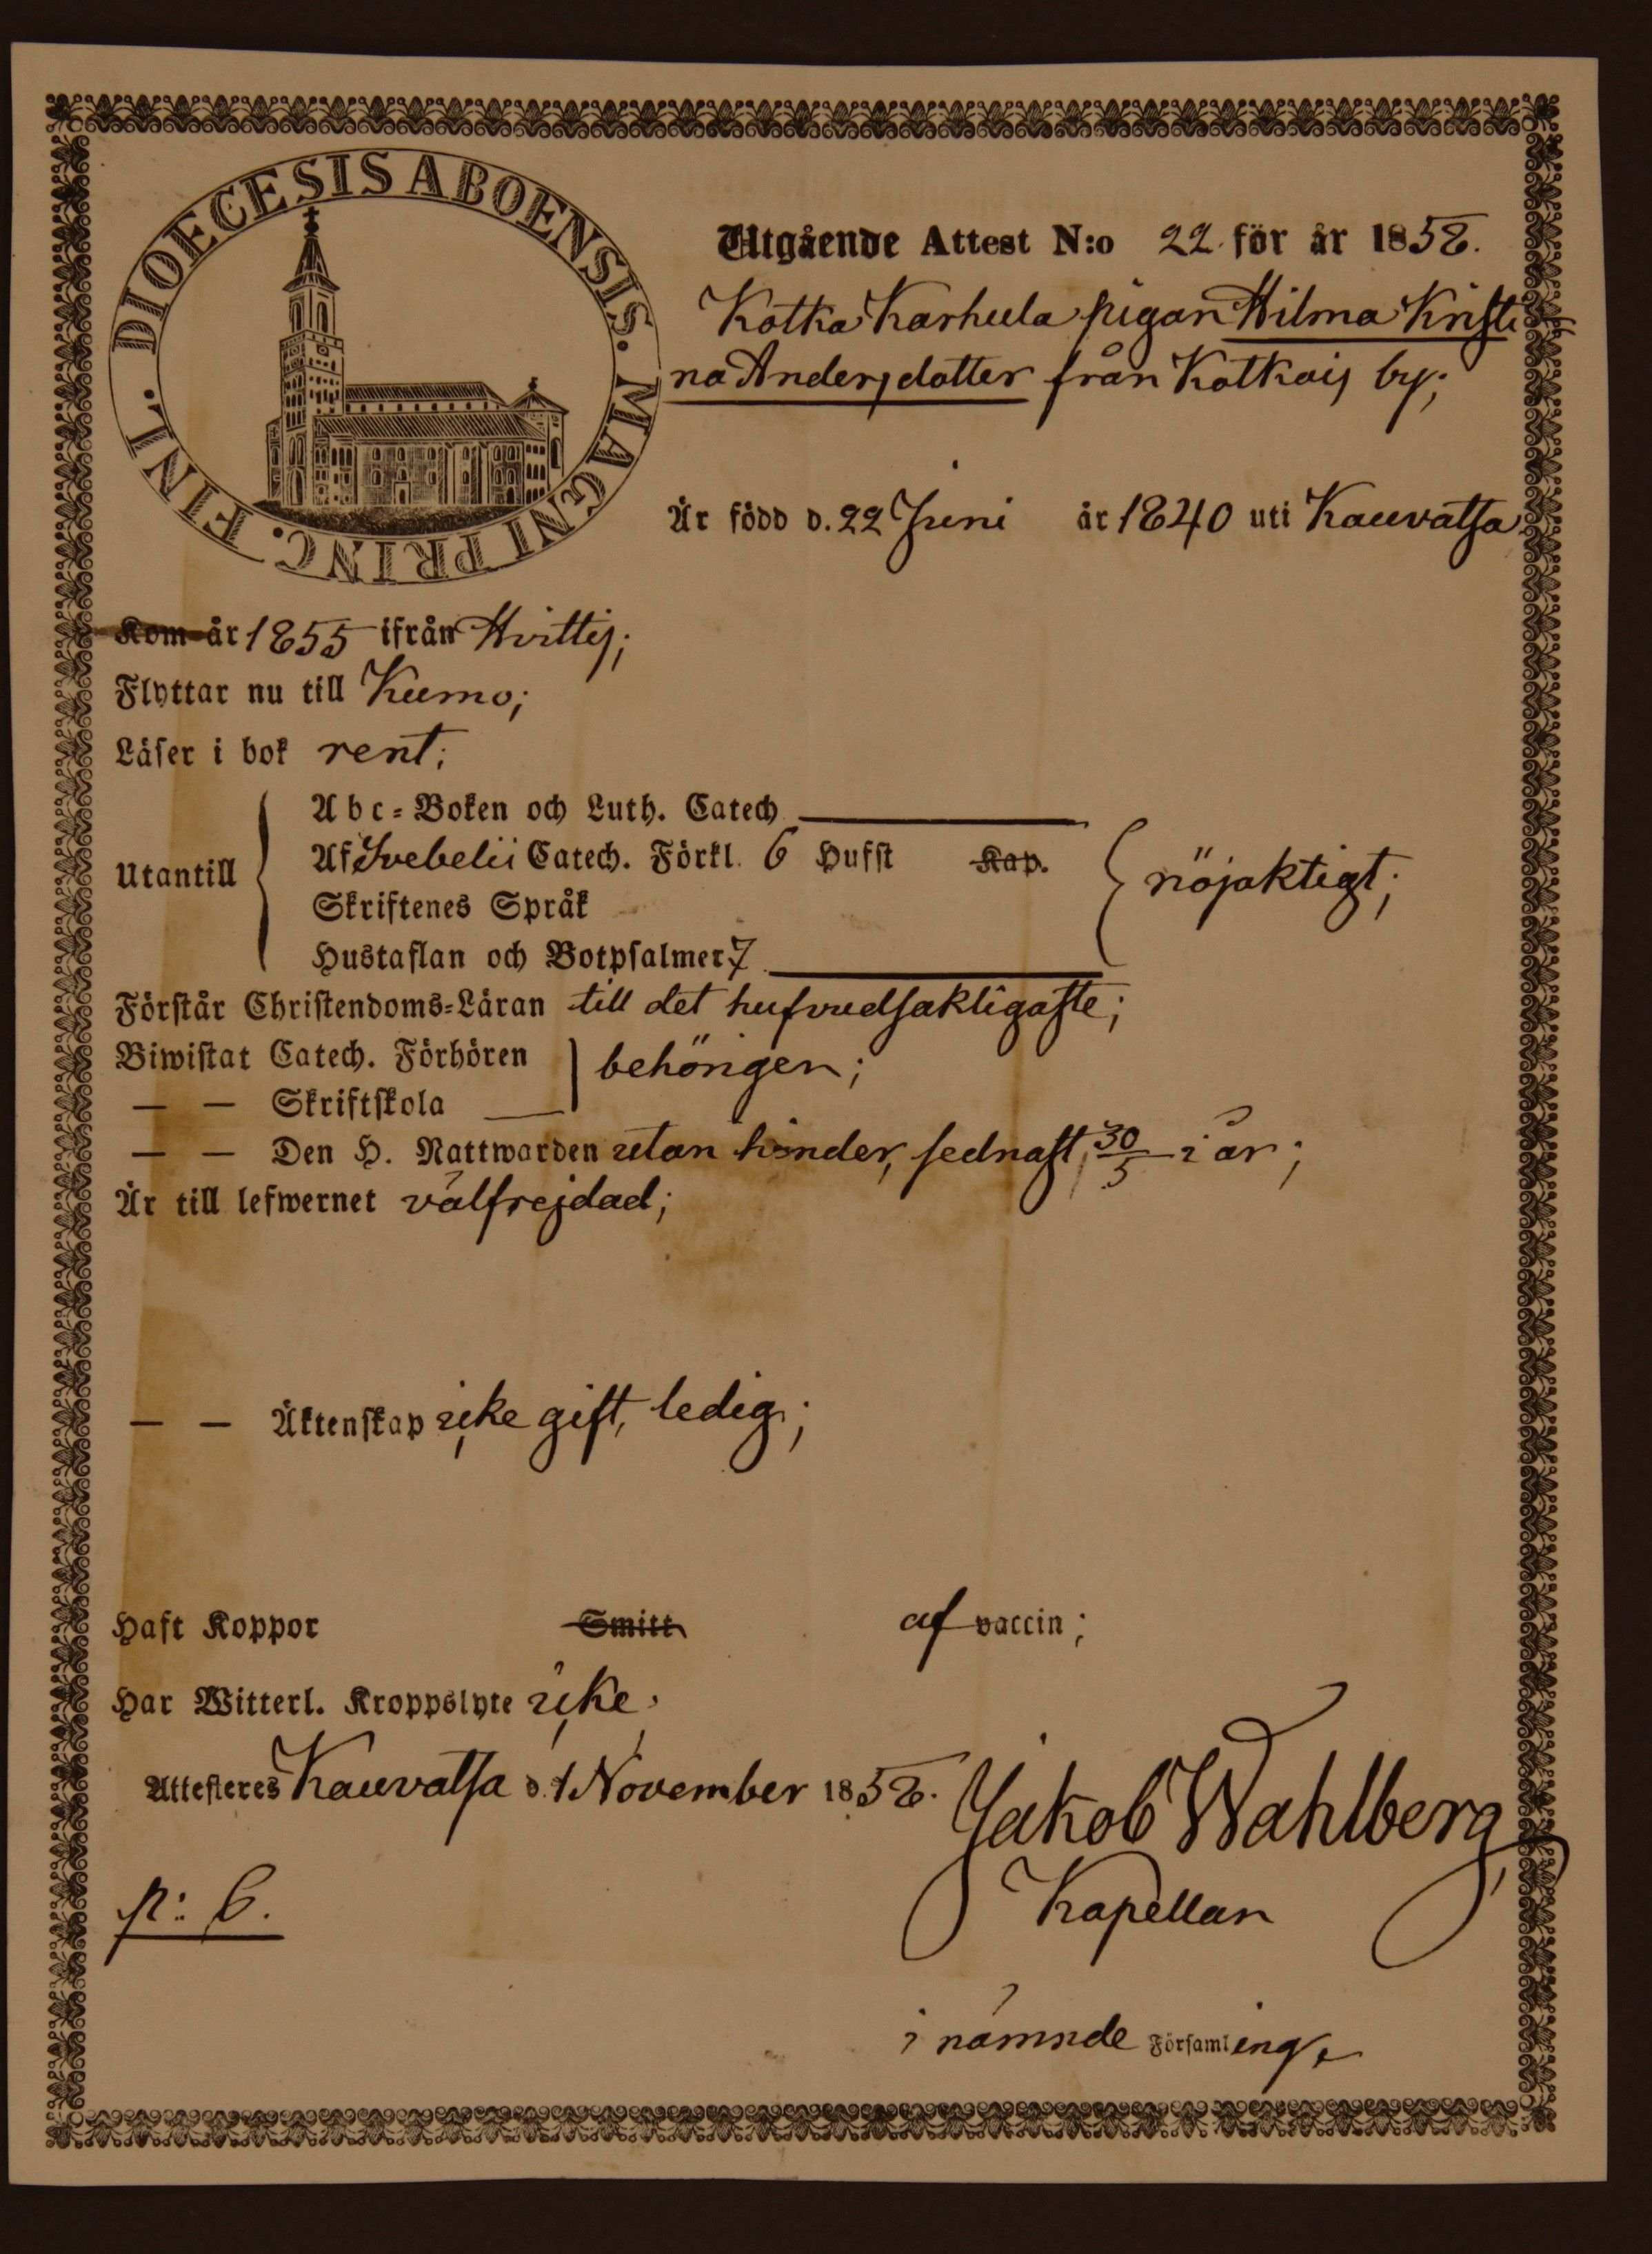 DIOECESIS ABOENSIS. MAGNI PRINC. FINL.
Utgående Attest N:o 22. för år 1858.
Kotka Karhula pigan Hilma Kristi
na Andersdotter från Kotkais by;
Är född d. 22 Juni år 1840 uti Kauvatsa
Kom år 1855 ifrån Hvittis;
Flyttar nu till Kumo;
Läser i bok rent;
Utantill
Abc-Boken och Luth. Catech
Af Svebelii Catech. Förkl. 6 Hufst Kap.
Skriftenes Språk
Hustaflan och Botpsalmer 7
nöjaktigt;
Förstår Christendoms-Läran till det hufvudsakligaste;
Biwistat Catech. Förhören
— — Skriftskola
behörigen;
— — Den H. Nattwarden utan hinder, sednast 30/5 i år;
Är till lefwernet välfrejdad;
— — Äktenskap icke gift, ledig;
Haft Koppor Smitt af vaccin;
Har Witterl. Kroppslyte icke.
Attesteres Kauvatsa d. 1 November 1858.
Jakob Wahlberg
Kapellan
p: 6.
i nämnde Församling.